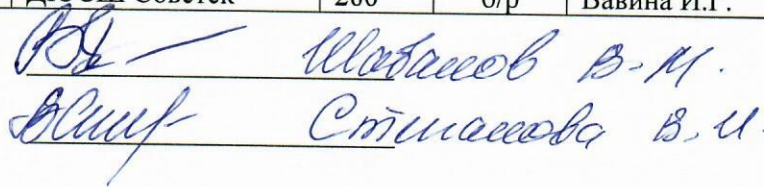 ДЮСШ Советск 200 б/р Вавина И.Г.
Шабалов В.М.
Степанова В.И.